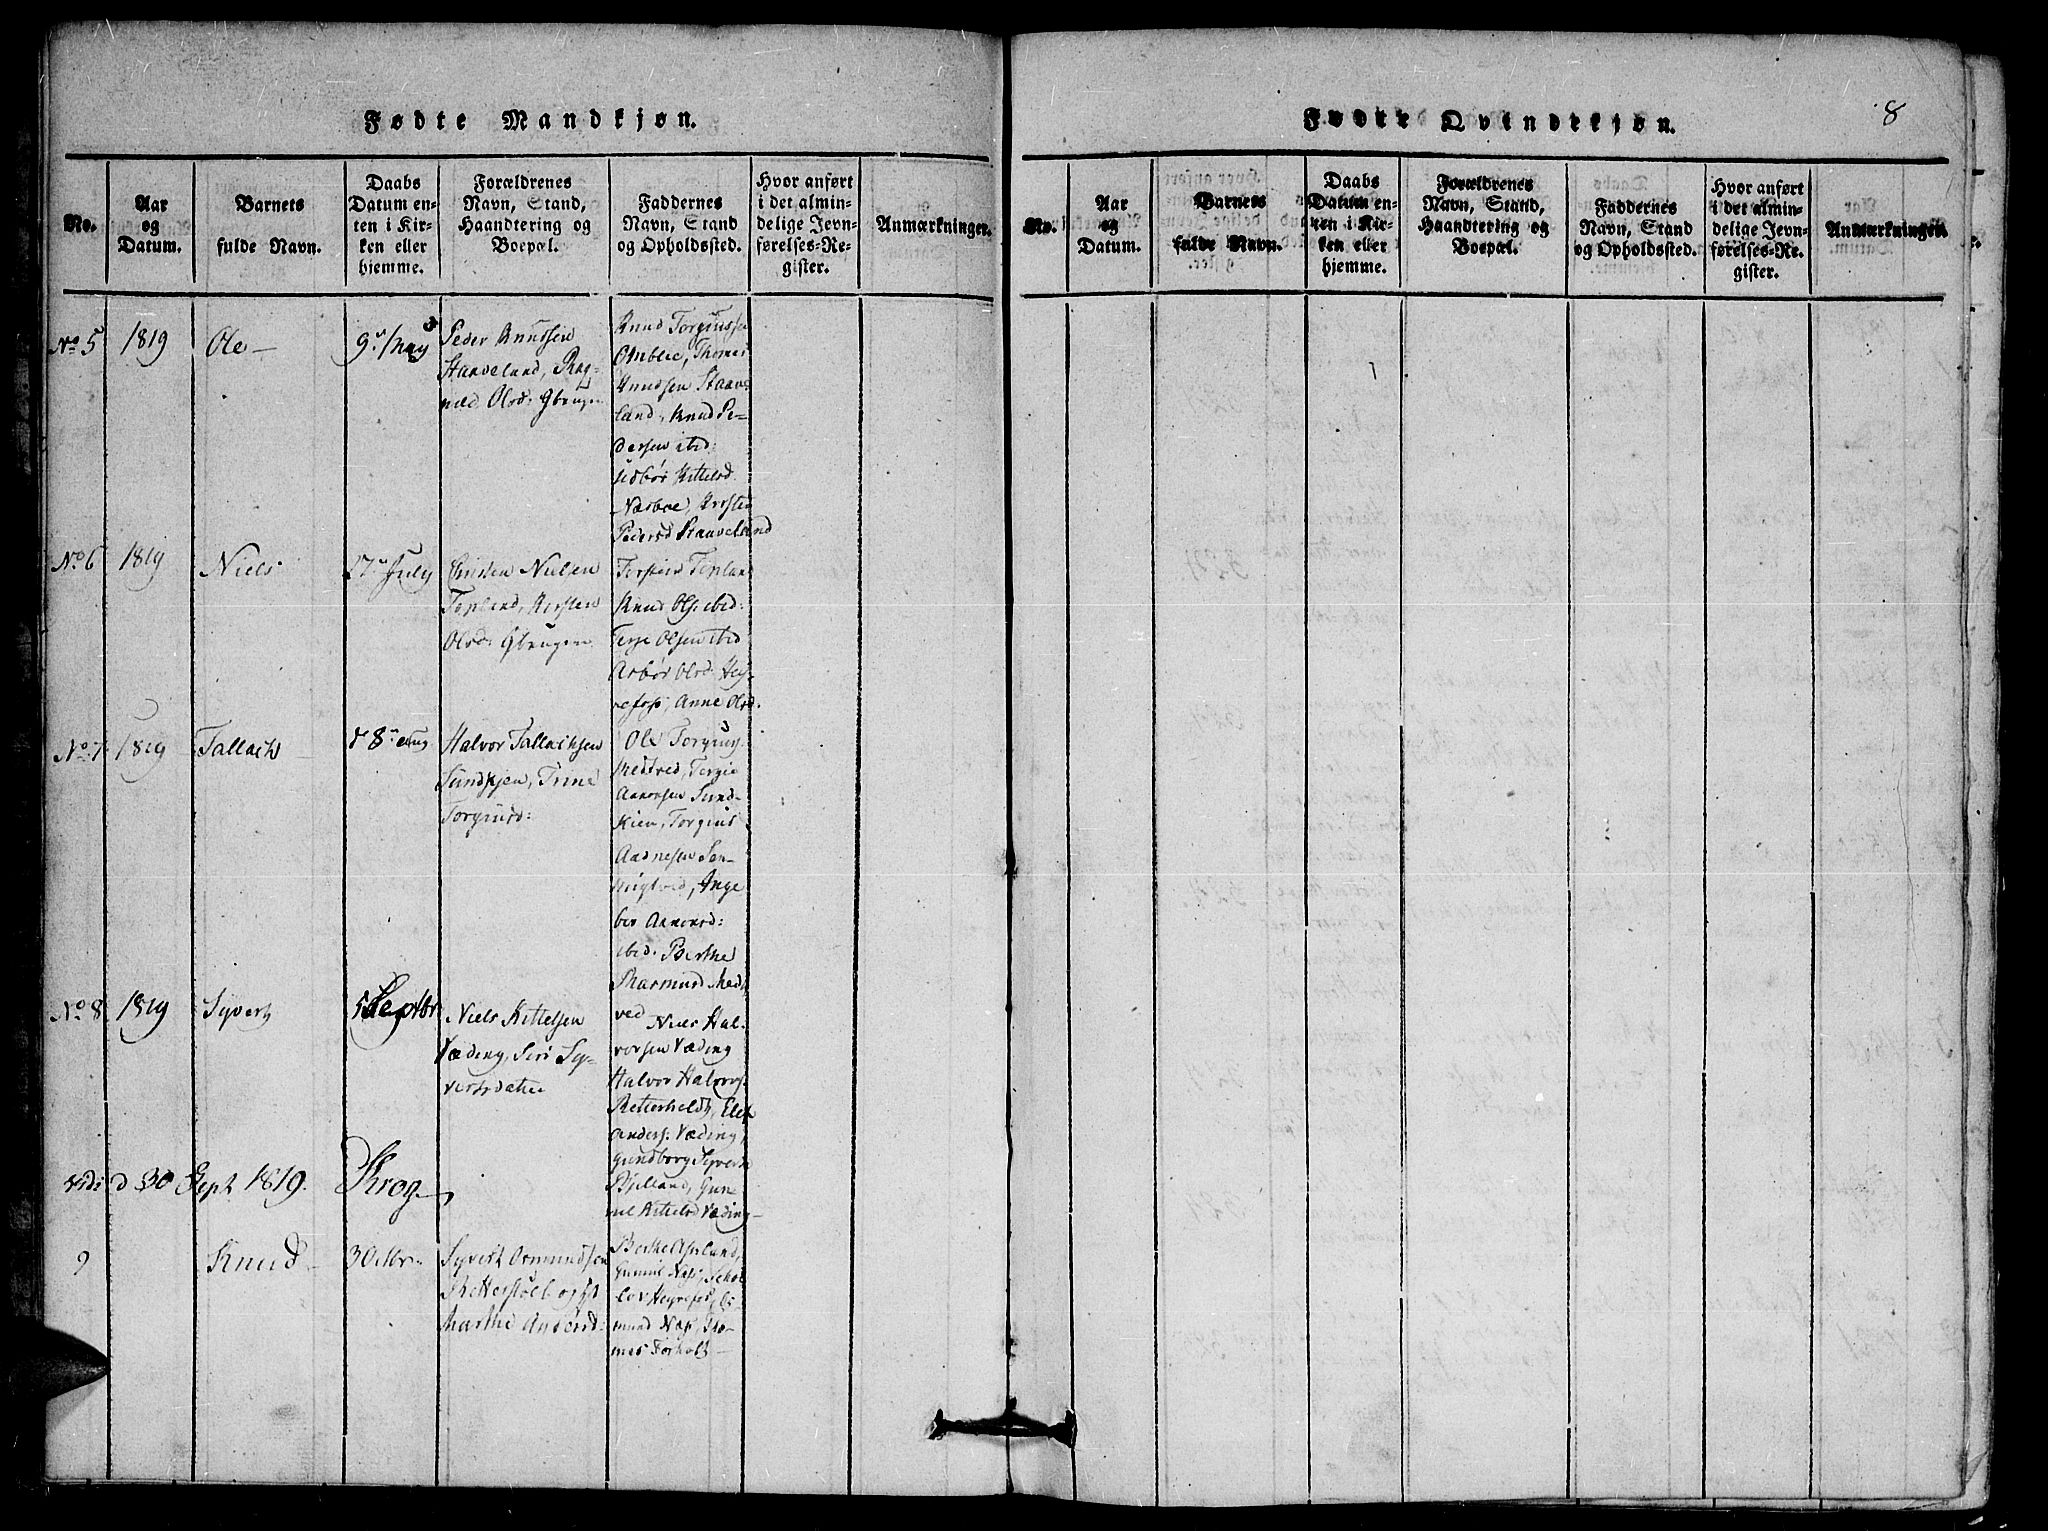 Fødte Mandkjøn.
No.
Aar
og
Datum.
Barnets
fulde Navn.
Daabs
Datum en-
ten i Kir-
ken eller
hjemme.
Forældrenes
Navn, Stand,
Haandtering og
Boepæl.
Faddernes
Navn, Stand
og Opholdssted.
Hvor anført
i det almin-
delige Jevn-
førelses-Re-
gister.
Anmærkninger.
No 5
1819
Ole
9 May
Peder Knudsen
Staaveland, Rag-
nild Olsd:
Knud Torgiuss
Omblie, Thomes
Knudsen Staave
land, Knud Pe-
dersen ibid:
Kittelsd
Næsboe, Kirsten
Pedersd Staaveland
No 6
1819
Niels
17 July
Christen Nielsen
Topland, Kirsten
Olsd:
Torsteen Topland
Knud Ols ibid:
Terje Olsen ibid
Asbør Olsd: Hey-
refoss, Anne Olsd.
No 7
1819
Tallach
8 Aug
Halvor Tallachsen
Sundkjen, Trine
Torgiusd:
Ole Torgius.
Medtved, Tergie
Aanonsen Sund-
kien, Torgius
Aadnesen
Inge
bor Aanonsd:
ibid. Berthe
Med
ved
No 8
1819
Syvert
5 Septbr
Niels Kittelsen
Væding, Siri Sy-
vertsdatter
Niels Hal-
vorsen Væding
Halvor Halvors.
Retterholdt, Elef
Anders: Væding,
Gundborg Syverts
Bjelland, Gun-
nil Kittelsd Væding
Vidi d 30 Sept 1819. Krog
9
Knud
3 Octbr
Syvert Osmundsen
Retterstøel og
Marthe Andersd:
Berthe Assland,
Gunnil Næs,
lev Heyrefos, Os
mund Næs, Tho-
mes Forholt
Fødte Qvindekjøn.
8
No.
Aar
og
Datum.
Barnets
fulde Navn.
Daabs
Datum en-
ten i Kir-
ken eller
hjemme.
Forældrenes
Navn, Stand,
Haandtering og
Boepæl.
Faddernes
Navn, Stand
og Opholdssted.
Hvor anført
i det almin-
delige Jevn-
førelses-Re-
gister.
Anmærkninger.